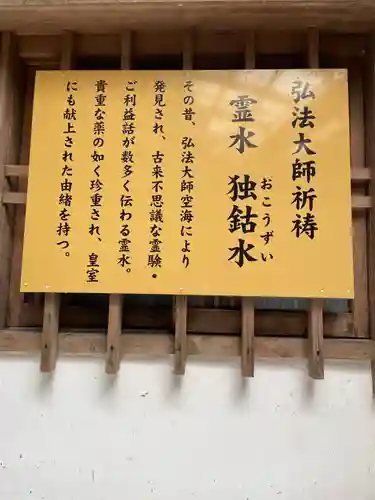 弘法大師祈祷
霊水 独鈷水
おこうずい
その昔、弘法大師空海により
発見され、古来不思議な霊験・
ご利益話が数多く伝わる霊水。
貴重な薬の如く珍重され、皇室
にも献上された由緒を持つ。